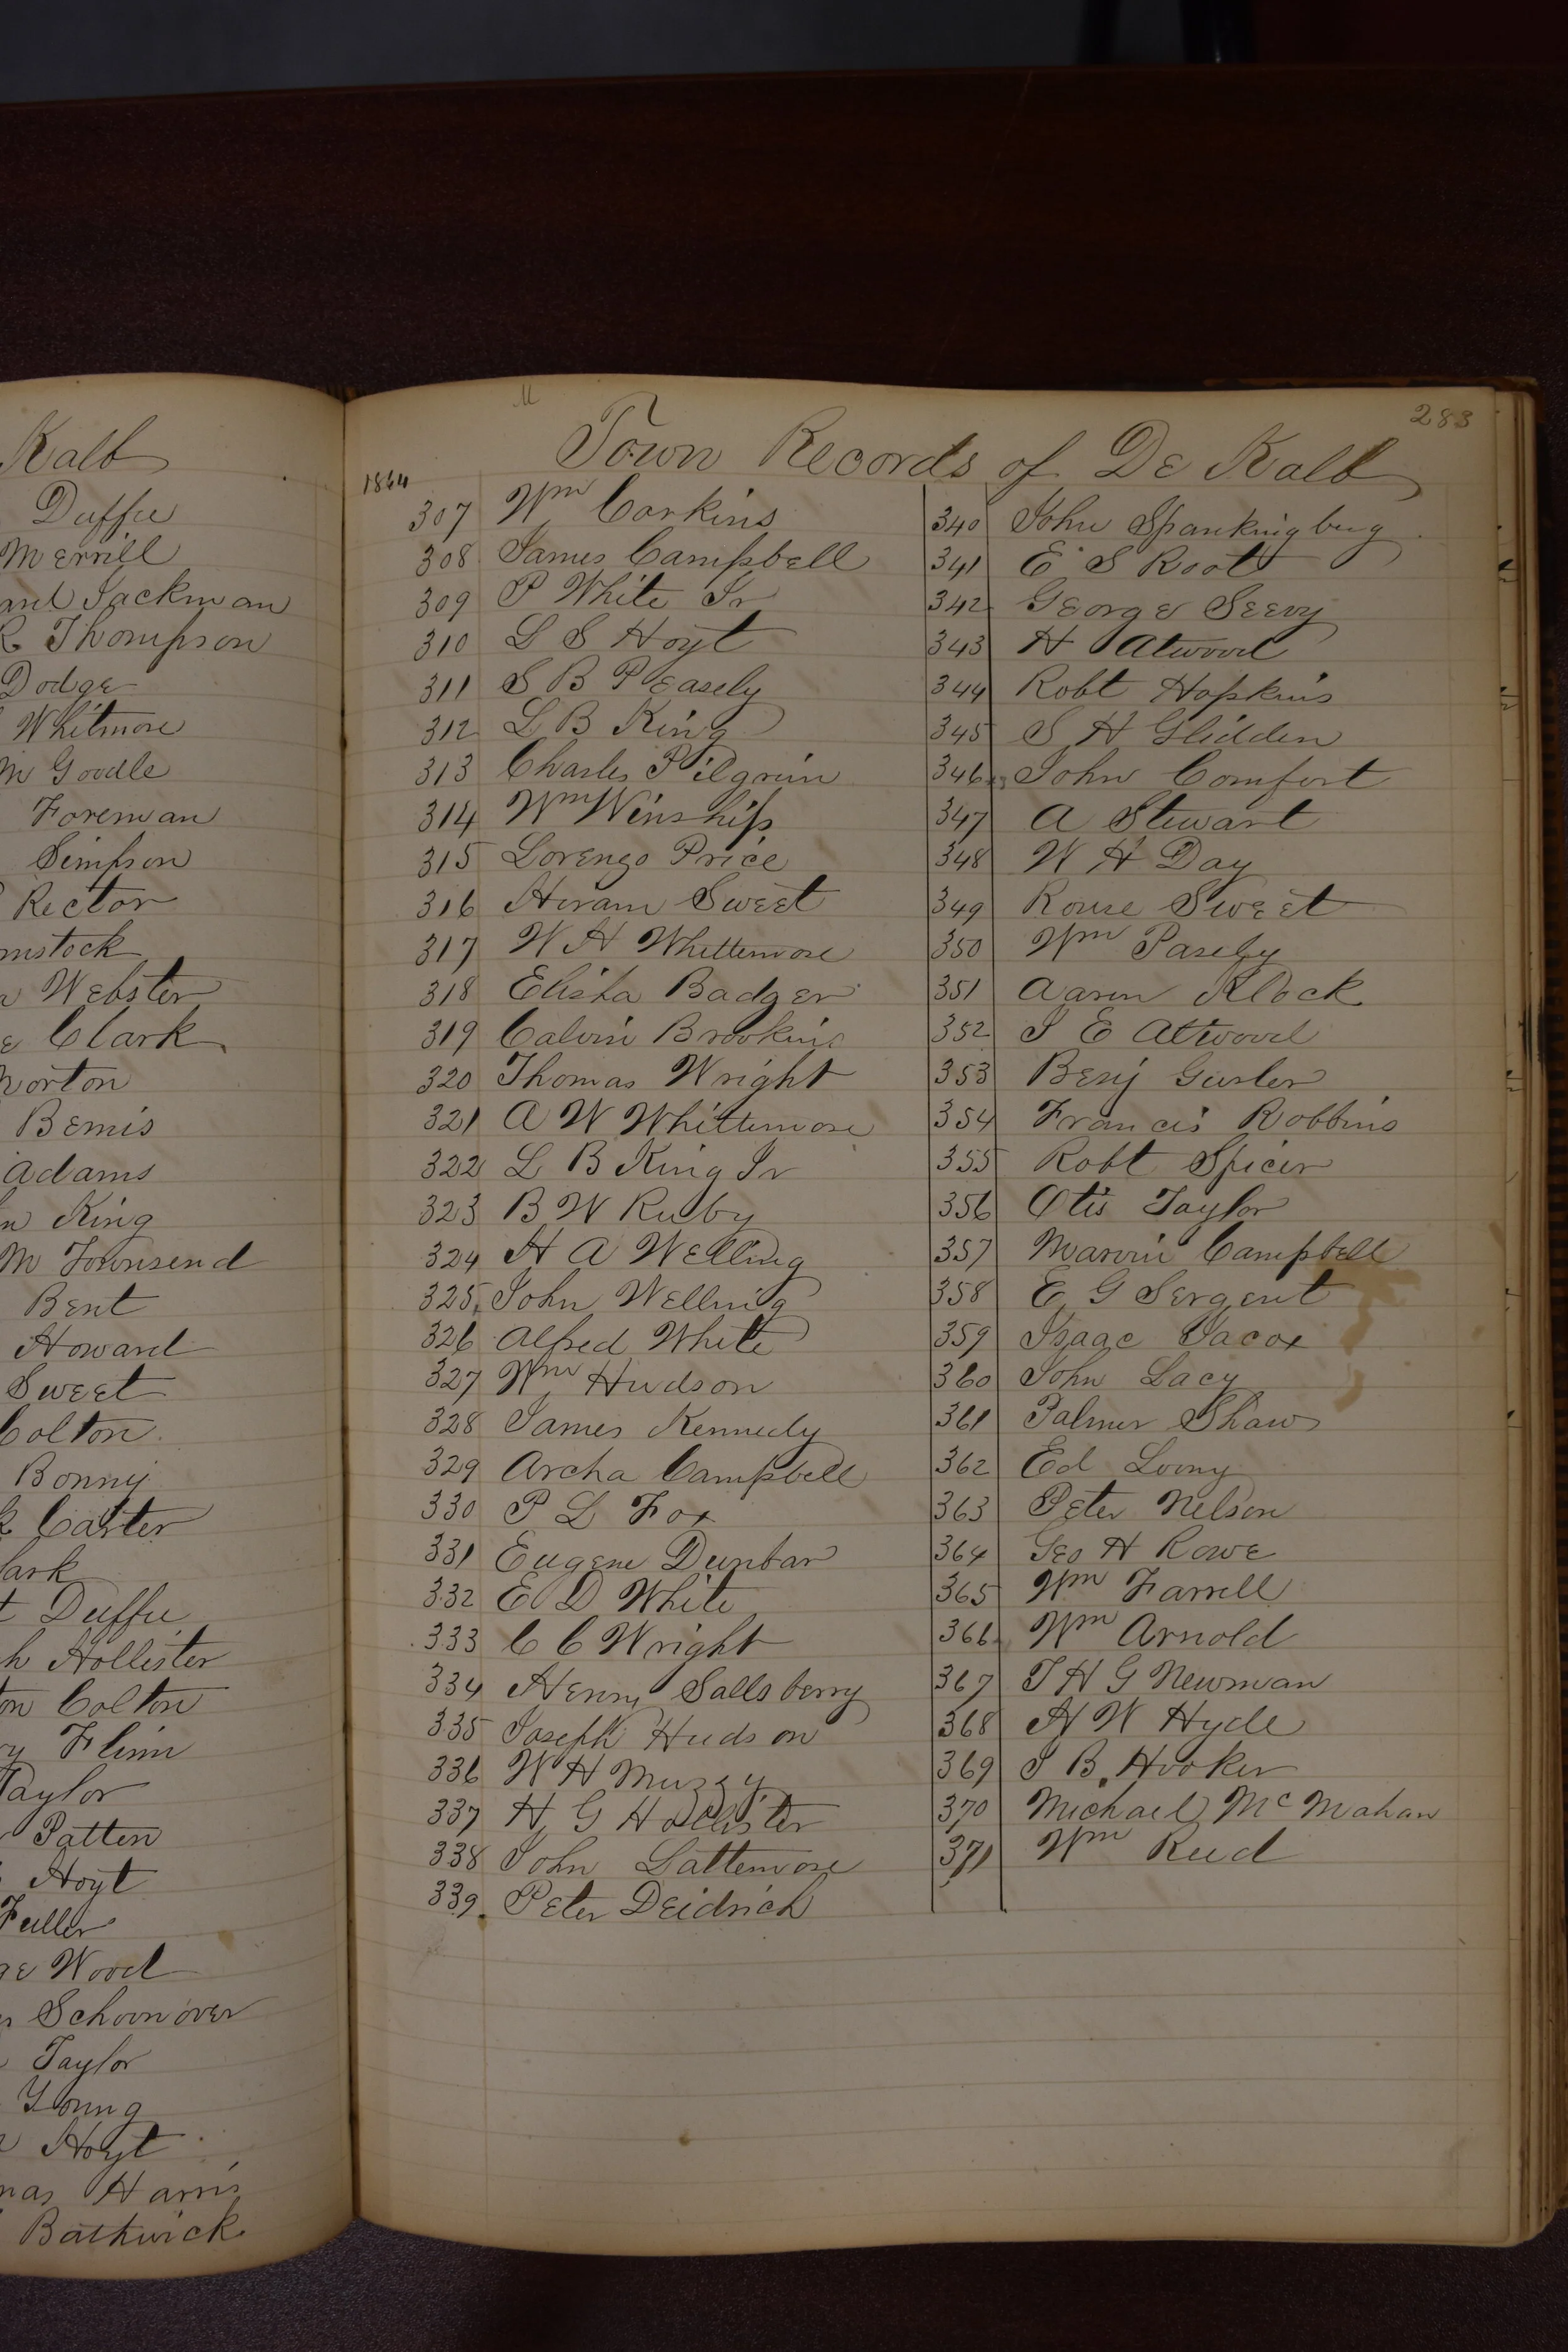 Kalb
Duffee
Merrill
Jackman
R Thompson
Dodge
Whitmore
M Goodle
Foreman
Simpson
Rector
mstock
Webster
Clark
Norton
Bemis
Adams
King
M Townsend
Bent
Howard
Sweet
Colton
Bonny
Carter
lark
Duffee
h Hollister
on Colton
Flinn
Taylor
Patten
Hoyt
Fuller
Wood
Schoonover
Taylor
Young
Hoyt
mas Harris
Bathwick
283
Town Records of De Kalb
1864
307 Wm Corkins
308 James Campbell
309 P White Jr
310 L S Hoyt
311 S B Peasely
312 L B King
313 Charles Pilgrim
314 Wm Winship
315 Lorenzo Price
316 Hiram Sweet
317 W H Whittemore
318 Elisha Badger
319 Calvin Brookins
320 Thomas Wright
321 A W Whittemore
322 L B King Jr
323 B W Ruby
324 H A Welling
325 John Welling
326 Alfred White
327 Wm Hudson
328 James Kennedy
329 Archa Campbell
330 P L Fox
331 Eugene Dunbar
332 E D White
333 C C Wright
334 Henry Sallsberry
335 Joseph Hudson
336 W H Muzzy
337 H G Hollister
338 John Lattemore
339 Peter Deidrich
340 John Spankingbug
341 E S Root
342 George Seevy
343 H Atwood
344 Robt Hopkins
345 S H Glidden
346 John Comfort
347 A Stewart
348 W H Day
349 Rouse Sweet
350 Wm Paseby
351 Aaron Klock
352 J E Atwood
353 Benj Gurler
354 Francis Robbins
355 Robt Spicer
356 Otis Taylor
357 Marvin Campbell
358 E G Sergent
359 Isaac Jacox
360 John Lacy
361 Palmer Shaw
362 Ed Loony
363 Peter Nelson
364 Geo H Rowe
365 Wm Farrell
366 Wm Arnold
367 J H G Newman
368 H W Hyde
369 J B Hooker
370 Michael McMahan
371 Wm Reed